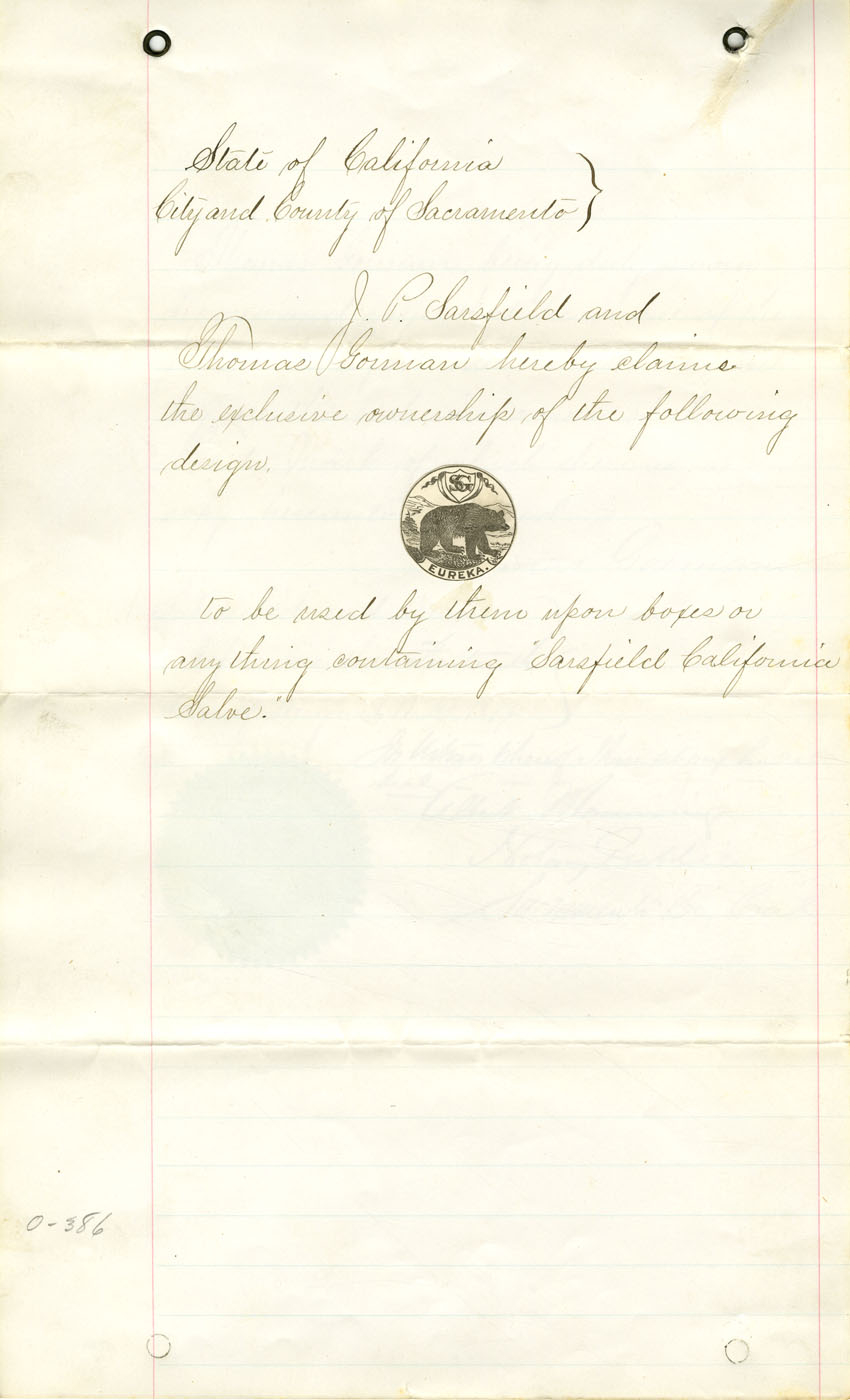 State of California
City and County of Sacramento }
J. P. Sarsfield and
Thomas Gorman hereby claims
the exclusive ownership of the following
design.
SG
EUREKA.
to be used by them upon boxes or
any thing containing "Sarsfield California
Salve."
Notary Public
Sacramento Co.
0-386